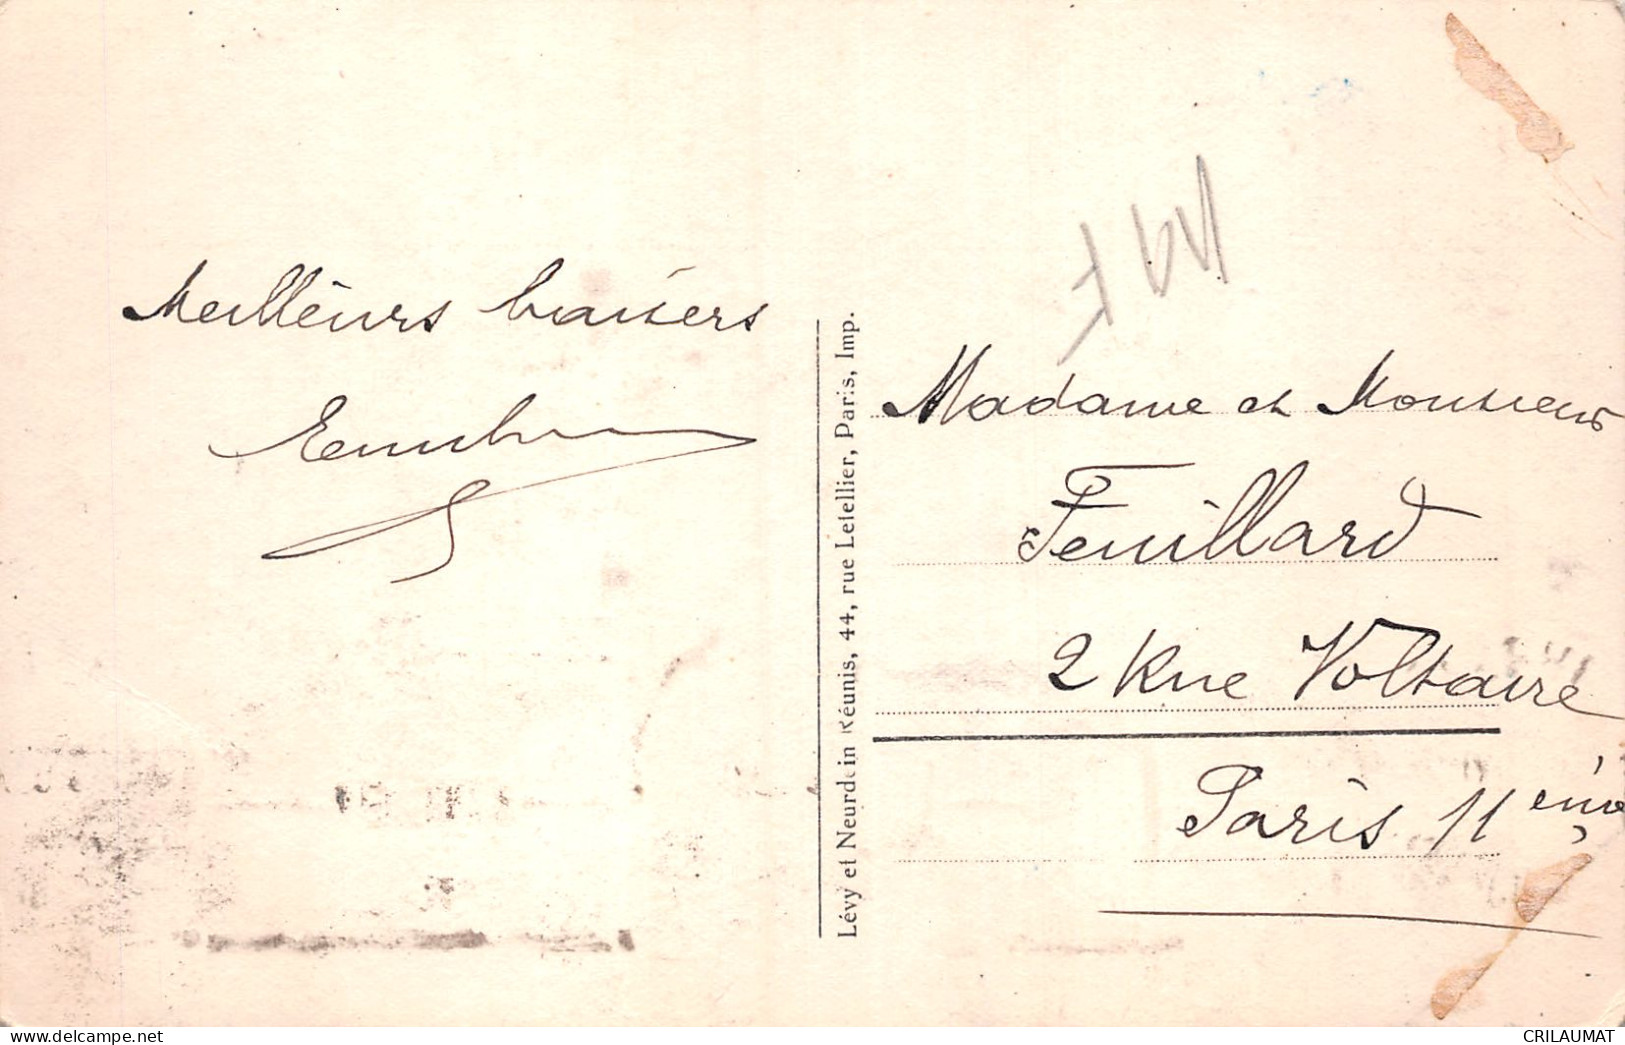 Meilleurs baisers
Lévy et Neurdein Réunis, 44, rue Letellier, Paris, Imp.
Madame et Monsieur
Feuillard
2 Rue Voltaire
Paris 11ème
www.delcampe.net
CRILAUMAT